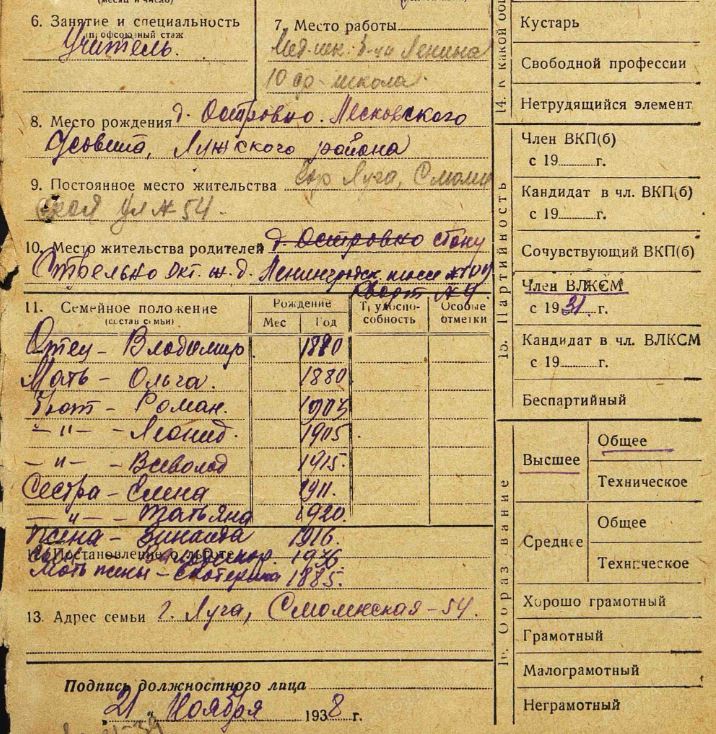 6. Занятие и специальность
и профсоюзный стаж
Учитель.
7. Место работы
10 ср. школа.
8. Место рождения д. Островно. Лесковского
Лужского района
9. Постоянное место жительства гор Луга, Смолен
ская ул № 54.
10. Место жительства родителей д. Островно
Ленинградск. шоссе
11. Семейное положение
(состав семьи)
Рождение
Мес Год
Трудоспособность
Особые отметки
Отец - Владимир 1880
Мать - Ольга. 1880
Брат - Роман. 1903
- " - - Леонид. 1905
- " - - Всеволод 1915.
Сестра - Елена 1911.
- " - - Татьяна 1920.
Жена - Зинаида 1916.
12. Постановление о льготе 1936
Мать жены - Екатерина 1885.
13. Адрес семьи г. Луга, Смоленская - 54.
Подпись должностного лица
21 " Ноября 1938 г.
14. К какой
Кустарь
Свободной профессии
Нетрудящийся элемент
15. Партийность
Член ВКП(б)
с 19 г.
Кандидат в чл. ВКП(б)
с 19 г.
Сочувствующий ВКП(б)
Член ВЛКСМ
с 1931 г.
Кандидат в чл. ВЛКСМ
с 19 г.
Беспартийный
Образование
Высшее
Общее
Техническое
Среднее
Общее
Техническое
Хорошо грамотный
Грамотный
Малограмотный
Неграмотный